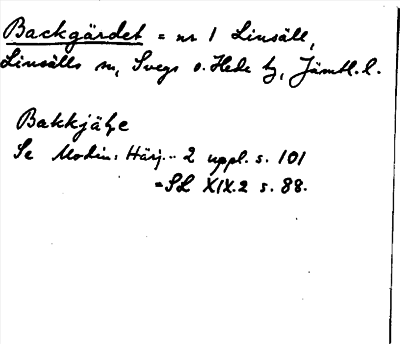 Backgärdet = nr 1 Linsäll,
Linsälls sn, Svegs o. Hede tg, Jämtl. l.
Bakkjäḷe
Se Modin: Härj... 2 uppl. s. 101
= SL XIX.2 s. 88.